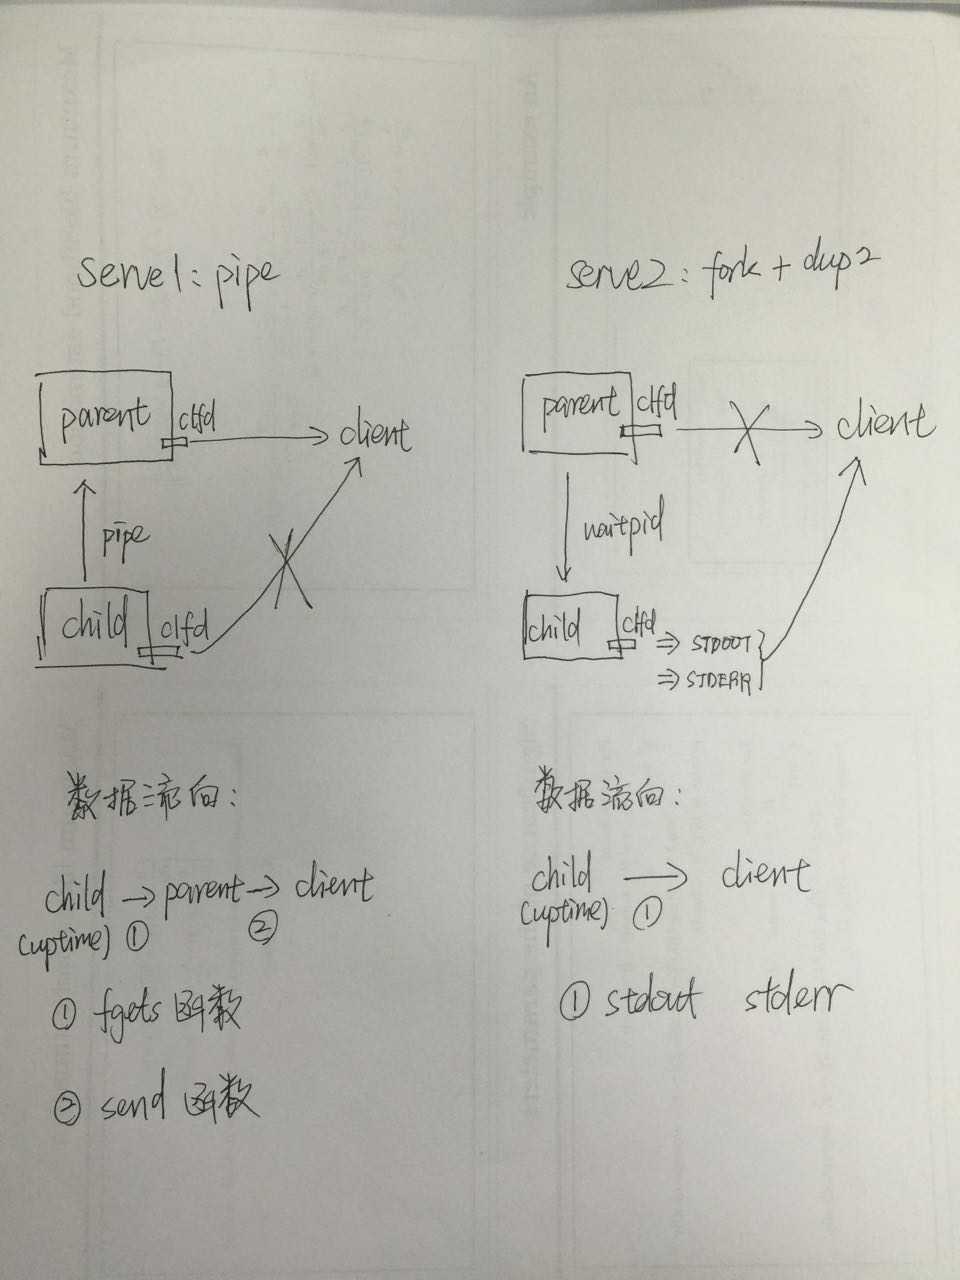 serve1: pipe
parent
clfd
client
pipe
child
clfd
数据流向:
child → parent → client
(uptime) ① ②
① fgets 函数
② send 函数
serve2: fork + dup2
parent
clfd
client
waitpid
child
clfd
⇒ STDOUT
⇒ STDERR
数据流向:
child → client
(uptime) ①
① stdout stderr